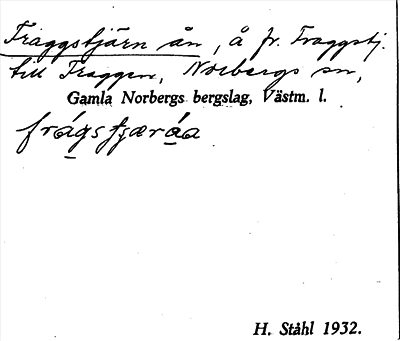 Traggstjärn ån, å fr. Traggstj.
till Traggen, Norbergs sn,
Gamla Norbergs bergslag, Västm. l.
frágstjæráa
H. Ståhl 1932.